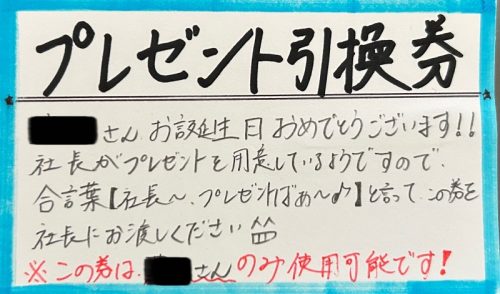 プレゼント引換券
さんお誕生日おめでとうございます!!
社長がプレゼントを用意しているようですので、
合言葉【社長〜、プレゼントばぁ〜♪】と言って、この券を
社長にお渡しください
※この券は、さんのみ使用可能です!